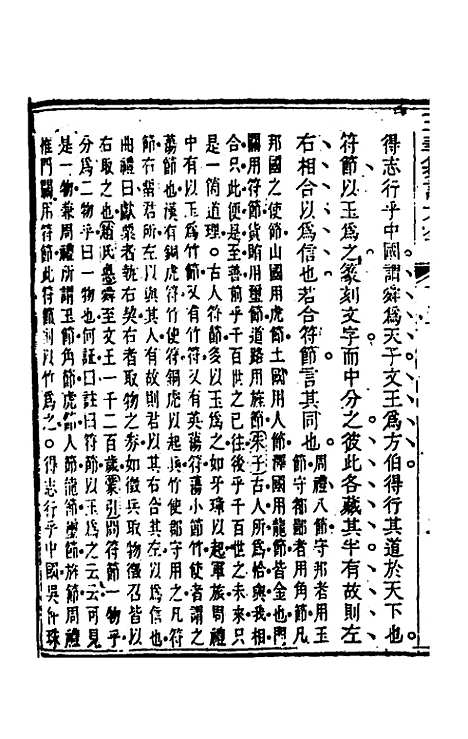 得志行乎中國謂舜爲天子文王爲方伯得行其道於天下也
符節以玉爲之篆刻文字而中分之彼此各藏其半有故則左
右相合以爲信也若合符節言其同也周禮八節守邦者用玉
節守都鄙者用角節凡
邦國之使節山國用虎節土國用人節澤國用龍節皆金也門
關用符節貨賄用璽節道路用旌節朱子古人所爲恰與我相
合只此便是至善前乎千百世之已往後乎千百世之未來只
是一箇道理古人符節多以玉爲之如牙璋以起軍旅周禮
中有以玉爲竹節又有竹符又有英蕩符蕩小節竹使者謂之
蕩節也漢有銅虎符竹使符銅虎以起兵竹使郡守用之凡符
節右留君所左以與其人有故則君以其右合其左以爲信也
曲禮曰獻粟者執右契右者取物之券如徵兵取物徵召皆以
右取之也趙氏惪舜至文王一千二百歲蒙引問符節一物乎
分爲二物乎曰一物也何證曰註曰符節以玉爲之云云可見
是一物兼周禮所謂玉節角節虎節人節龍節璽節旌節周禮
惟門關用符節此符節則以竹爲之得志行乎中國吳仲珠